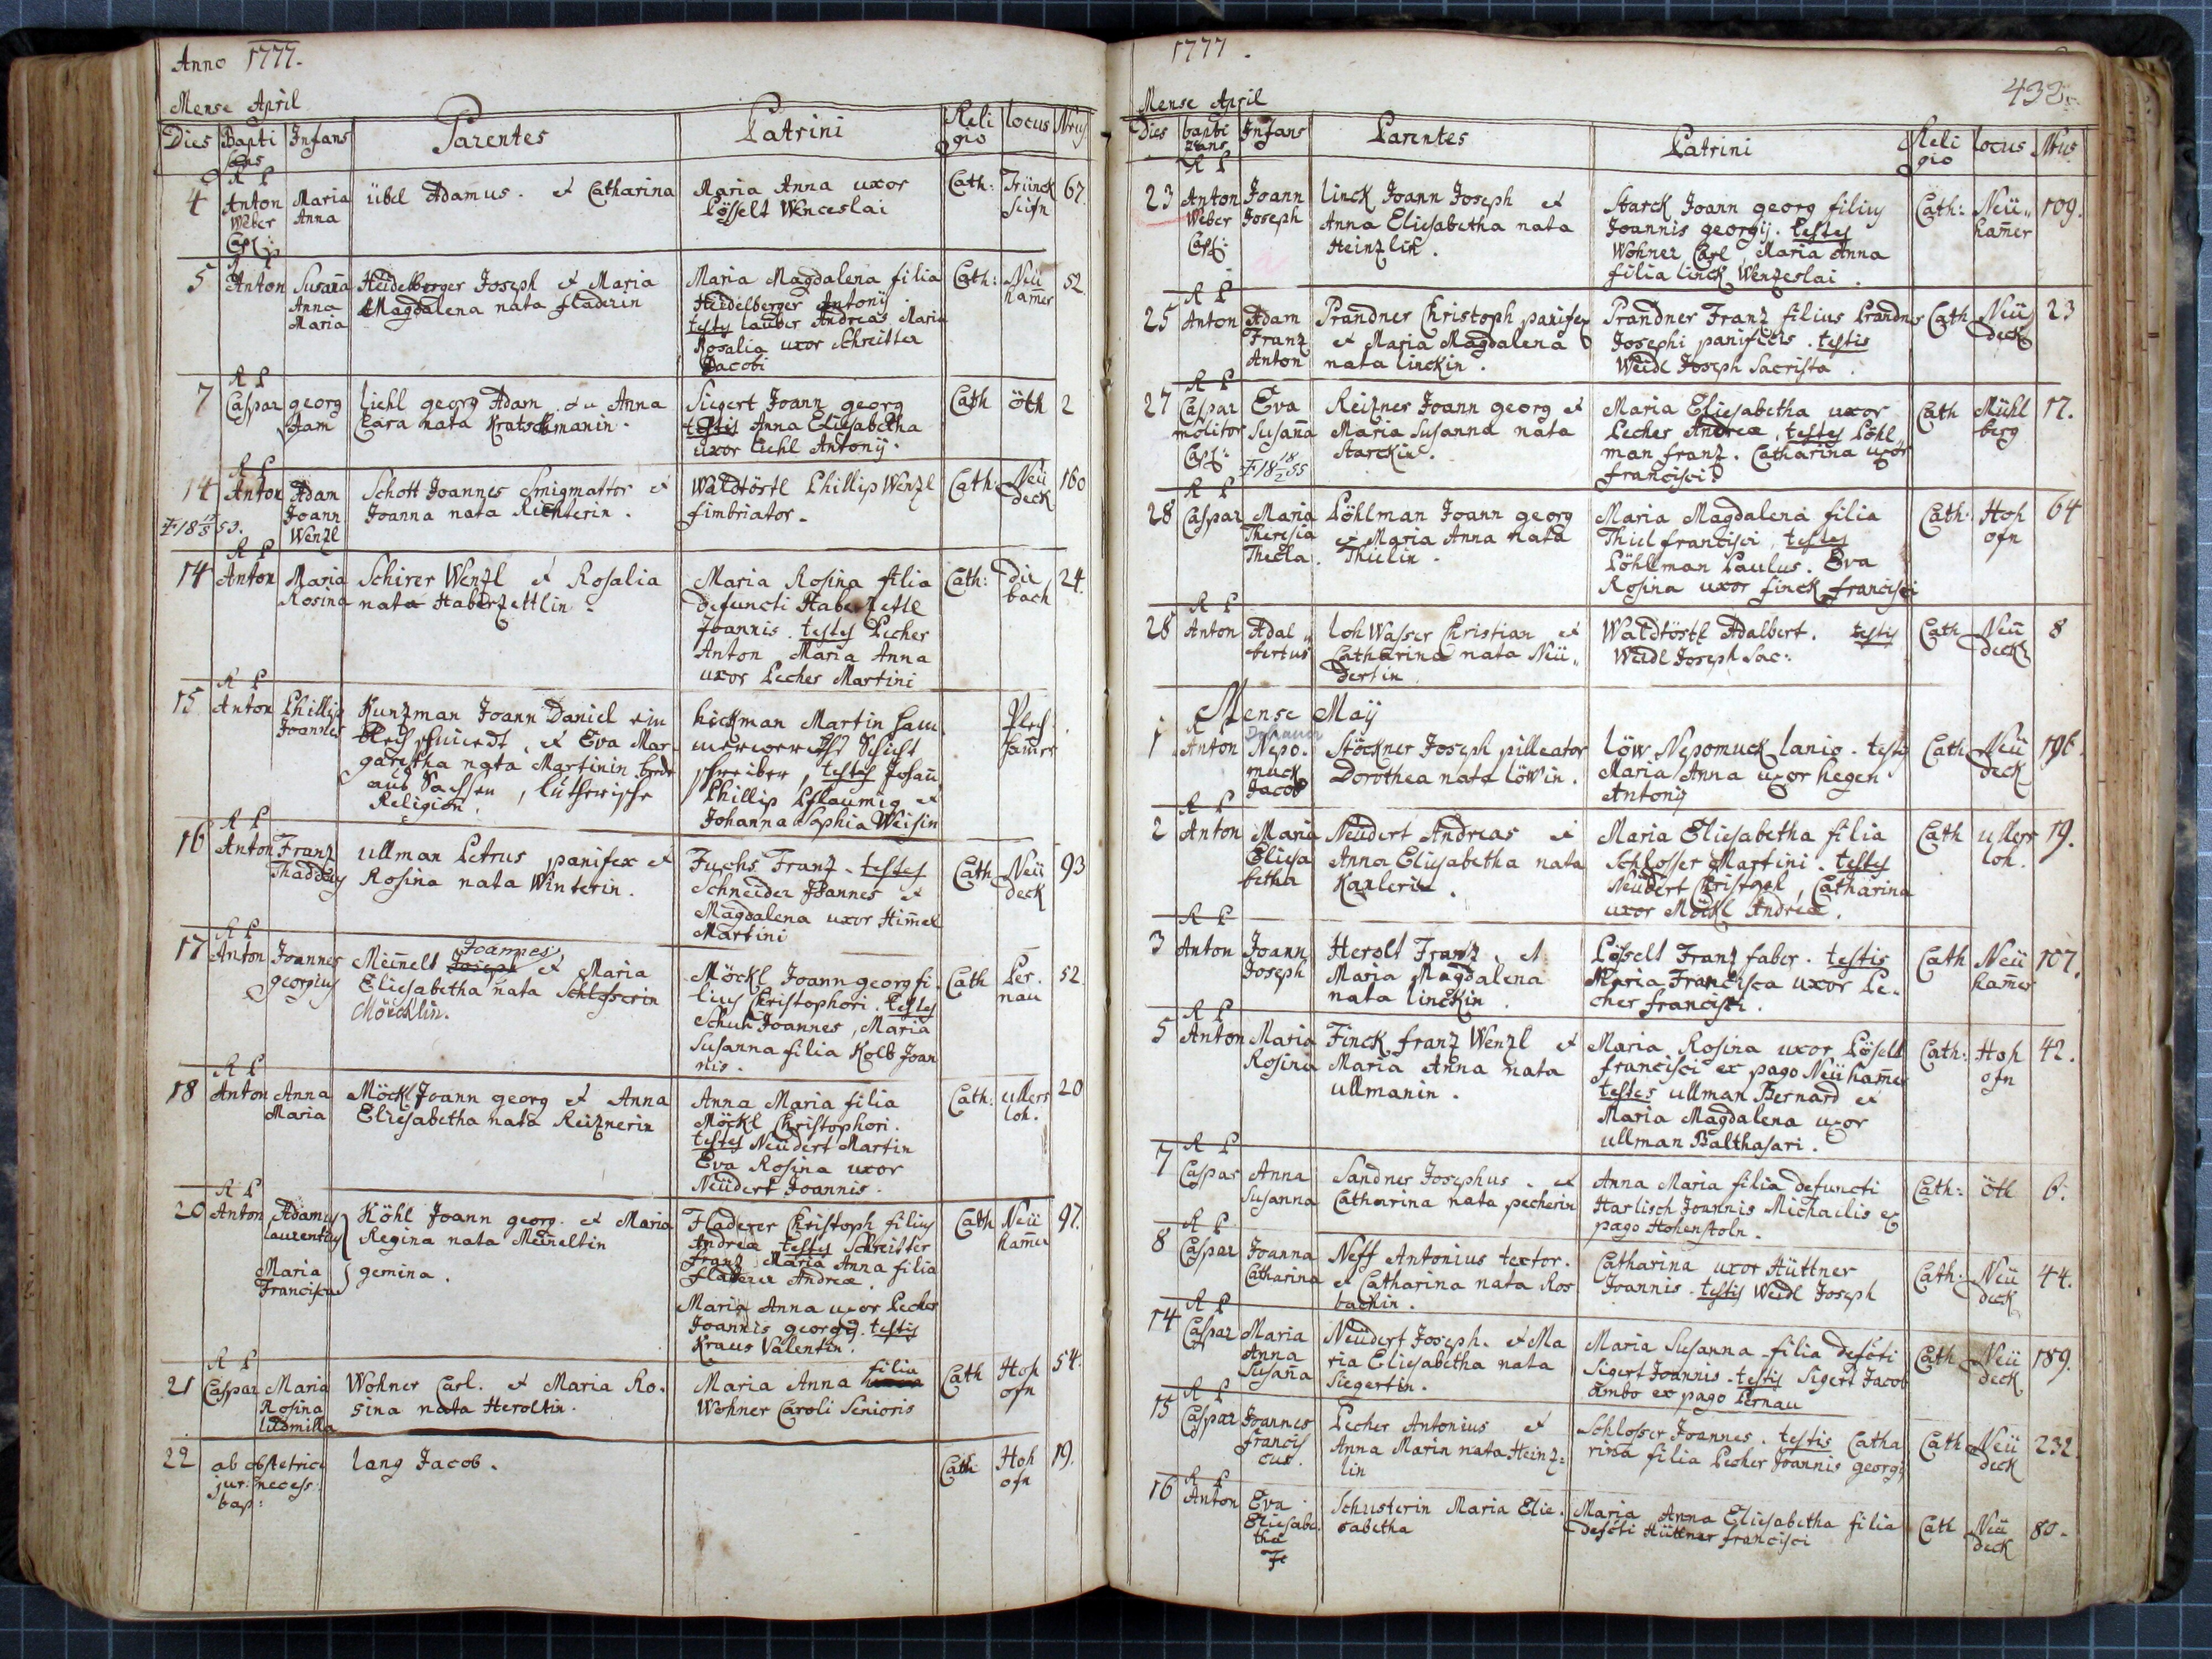 Anno 1777.
Mense April
Dies Bapti Infans Parentes Patrini Reli locus Nrus
sans gio
R P
4 Anton Maria übel Adamus. et Catharina Maria Anna uxor Cath: Trünck 67.
Weber Anna Pösselt Wenceslai seifn
Capl:
R P
5 Anton Susaña Heidelberger Joseph et Maria Maria Magdalena filia Cath: Neü 52.
Anna Magdalena nata fladerin Heidelberger Antonij hamer
Maria testes lauber Andreas Maria
Rosalia uxor Schreitter
Jacobi
R P
7 Caspar georg liehl georg Adam et Anna Siegert Joann georg Cath öth 2
Adam Clara nata Kratschmanin. testis Anna Eliesabetha
uxor liehl Antonij.
R P
14 Anton Adam Schott Joannes Smigmattor et Waldtöstl Phillip Wenzl Cath: Neü 160
Joann Joanna nata Richterin. fimbriator. deck
Wenzl
R P
14 Anton Maria Schirer Wenzl et Rosalia Maria Rosina filia Cath: die 24.
Rosina nata Haberzettlin. defuncti Haberzettl bach
Joannis. testes Pecher
Anton Maria Anna
uxor Pecher Martini
R P
15 Anton Phillip Kunzman Joann Daniel ein hickman Martin ham
Joannes blechschmiedt, et Eva Mar- Schicht
garetha nata Martinin schreiber, testes Johañ
aus Sachsen, lutherische Phillip Pflaumig et
Religion. Johanna Sophia Weisin
R P
16 Anton Franz ullman Petrus panifex et Fuchs Franz. testes Cath Neü 93
Thaddeus Rosina nata Winterin. Schneider Joannes et deck
Magdalena uxor Himel
Martini
R P Joannes
17 Anton Joannes Meinelt Joseph et Maria Möckl Joann georg fi- Cath Per. 52.
georgius Eliesabetha nata Schlosserin lius Christophori. testes nau
Möecklin. Schuh Joannes, Maria
Susanna filia Kolb Joan
nis.
R P
18 Anton Anna Möckl Joann georg et Anna Anna Maria filia Cath: ullers 20
Maria Eliesabetha nata Reiznerin Möckl Christophori. loh.
testes Neüdert Martin
Eva Rosina uxor
Neüdert Joannis.
R P
20 Anton Adamus Höhl Joann georg. et Maria Fladerer Christoph filius Cath Neü 97.
laurentius Regina nata Meineltin Andreæ testes Schreitter hamer
Franz Maria Anna filia
Maria gemina. fladerer Andreæ.
Francisca
Maria Anna uxor Pecher
Joannis georgij. testis
Kraus Valentin.
R P filia
21 Caspar Maria Wohner Carl. et Maria Ro. Maria Anna Cath Hoh 54.
Rosina sina nata Heroltin. Wohner Caroli Senioris ofn
ludmilla
22 ab obstetrice lang Jacob. Cath Hoh 19.
jur: necess: ofn
bap:
1777.
432
Mense April
Dies bapti Infans Parentes Patrini Reli locus Nrus
zans gio
R P
23 Anton Joann linck Joann Joseph et Starck Joann georg filius Cath: Neü„ 109.
Weber Joseph Anna Eliesabetha nata Joannis georgij. testes hamer
Capl: Heinzlin. Wohner Carl, Maria Anna
filia linck Wenzeslai.
R P
25 Anton Adam Prandner Christoph panifex Prandner Franz filius Prandner Cath Neü 23
Franz et Maria Magdalena Josephi panificis. testis deck
Anton nata linckin. Weidl Joseph Sacrista.
R P
27 Caspar Eva Reizner Joann georg et Maria Eliesabetha uxor Cath Mühl 17.
molitor Susaña Maria Susanna nata Pecher Andreæ, testes Pöhl„ berg
Capl: Starckin. man franz. Catharina uxor
francisci.
R P
28 Caspar Maria Pöhlman Joann georg Maria Magdalena filia Cath: Hoh 64
Theresia et Maria Anna nata Thiel francisci, testes ofn
Thecla. Thielin. Pöhlman Paulus. Eva
Rosina uxor finck francisci
R P
28 Anton Adal„ lohWasser Christian et Waldtöstl Adalbert. testis Cath Neü 8
bertus Catharina nata Neü„ Weidl Joseph Sac: deck
dertin
Mense Maÿ
R P Johann
1 Anton Nepo- Stöckner Joseph pilleator löw Nepomuck lanio. testis Cath Neü 196.
muck Dorothea nata löwin. Maria Anna uxor hegen deck
Jacob Antonij
R P
2 Anton Maria Neüdert Andreas et Maria Eliesabetha filia Cath ullers 19.
Eliesa Anna Eliesabetha nata Schlosser Martini. testes loh.
betha Karlerin. Neüdert Christoph, Catharina
uxor Möckl Andreæ.
R P
3 Anton Joann Herolt Franz. et Pösselt Franz faber. testis Cath Neü 107.
Joseph Maria Magdalena Maria Francisca uxor Pe„ hamer
nata linckin. cher francisci.
R P
5 Anton Maria Finck franz Wenzl et Maria Rosina uxor Pöselt Cath: Hoh 42.
Rosina Maria Anna nata francisci ex pago Neühamer ofn
ullmanin. testes ullman Bernard et
Maria Magdalena uxor
ullman Balthasari.
R P
7 Caspar Anna Sandner Josephus. et Anna Maria filia defuncti Cath: öth 6.
Susanna Catharina nata pecherin Harlisch Joannis Michaelis ex
pago Hohenstoln.
R P
8 Caspar Joanna Neff Antonius textor. Catharina uxor Hüttner Cath: Neü 44.
Catharina et Catharina nata Ros Joannis. testis Weidl Joseph deck
bachin.
R P
14 Caspar Maria Neüdert Joseph. et Ma Maria Susanna filia defcti Cath Neü 189.
Anna ria Eliesabetha nata Sigert Joannis. testis Sigert Jacob deck
Susaña Siegertin. ambo ex pago Pernau
R P
15 Caspar Joannes Pecher Antonius et Schlosser Joannes. testis Catha Cath Neü 232.
francis Anna Maria nata Heinz= rina filia Pecher Joannis georgij deck
cus. lin
R P
16 Anton Eva Schusterin Maria Elie. Maria Anna Eliesabetha filia Cath Neü 80.
Eliesabe sabetha defcti Hüttner francisci deck
tha